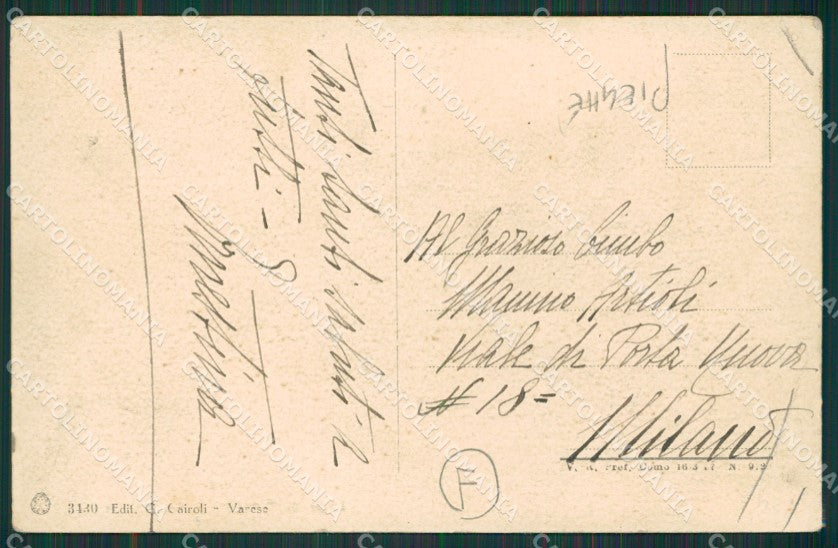 Tanti saluti
tutti -
PIEGHE
Al Grazioso bimbo
Artioli
Viale di Porta Nuova
N 18 =
Milano
V. d. Pref. Como 16 3 17 N. 9.
F
3430 Edit. C. Cairoli - Varese
CARTOLINOMANIA